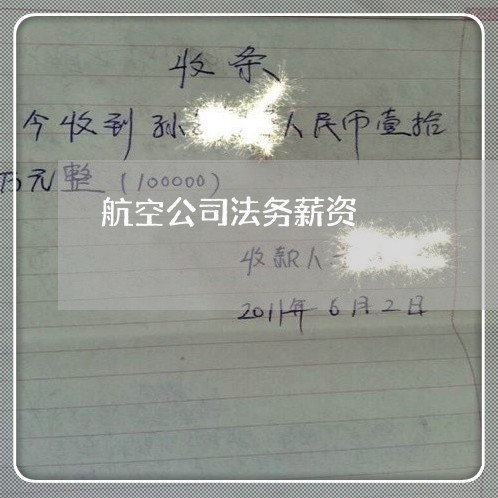 收条
今收到孙 人民币壹拾
万元整（100000）
航空公司法务薪资
收款人
2011年6月2日